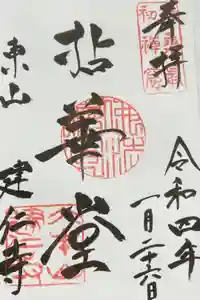 奉拝
令和四年
一月二十六日
拈華堂
東山
建仁寺